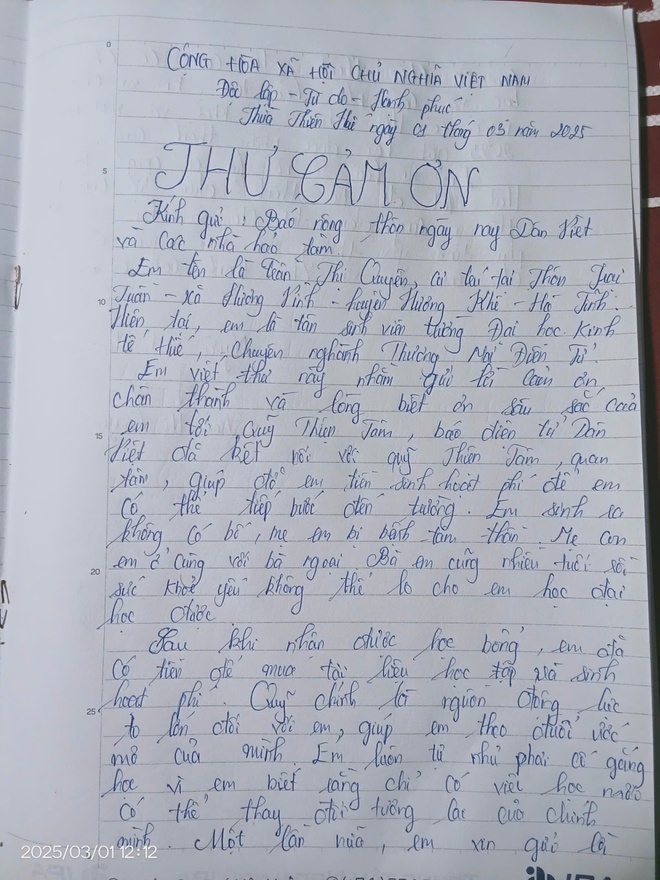 CỘNG HÒA XÃ HỘI CHỦ NGHĨA VIỆT NAM
Độc lập - Tự do - Hạnh phúc
Thừa Thiên Huế ngày 01 tháng 03 năm 2025
THƯ CẢM ƠN
Kính gửi: Báo nông thôn ngày nay Dân Việt
và các nhà hảo tâm.
Em tên là Trần Thị Quyên, cư trú tại Thôn
Tuần - xã Hương Vĩnh - huyện Hương Khê - Hà Tĩnh.
Hiện tại, em là tân sinh viên trường Đại học Kinh
tế Huế, Chuyên nghành Thương Mại Điện Tử.
Em viết thư này nhằm gửi lời cảm ơn
chân thành và lòng biết ơn sâu sắc của
em tới Quỹ Thiện Tâm, báo điện tử Dân
Việt đã kết nối với quỹ Thiện Tâm, quan
tâm, giúp đỡ em tiền sinh hoạt phí để em
có thể tiếp bước đến trường. Em sinh ra
không có bố, mẹ em bị bệnh tâm thần. Mẹ con
em ở cùng với bà ngoại. Bà em cũng nhiều tuổi rồi
sức khoẻ yếu không thể lo cho em học đại
học được
Sau khi nhận được học bổng, em đã
có tiền để mua tài liệu học tập và sinh
hoạt phí. Quỹ chính là nguồn động lực
to lớn đối với em, giúp em theo đuổi ước
mơ của mình. Em luôn tự nhủ phải cố gắng
học vì em biết rằng chỉ có việc học mới
có thể thay đổi tương lai của chính
mình. Một lần nữa, em xin gửi lời
2025/03/01 12:12